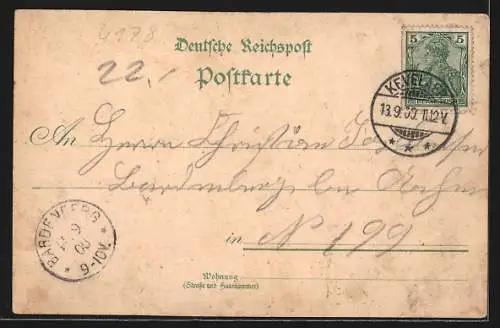 4178
Deutsche Reichspost
22,-
Postkarte
5 5
KEVELAER
13.9.00. 11-12V.
An Herrn Christian
Bardenberg bei Aachen
in N 199
BARDENBERG
9
00
9-10V.
Wohnung
(Straße und Hausnummer)